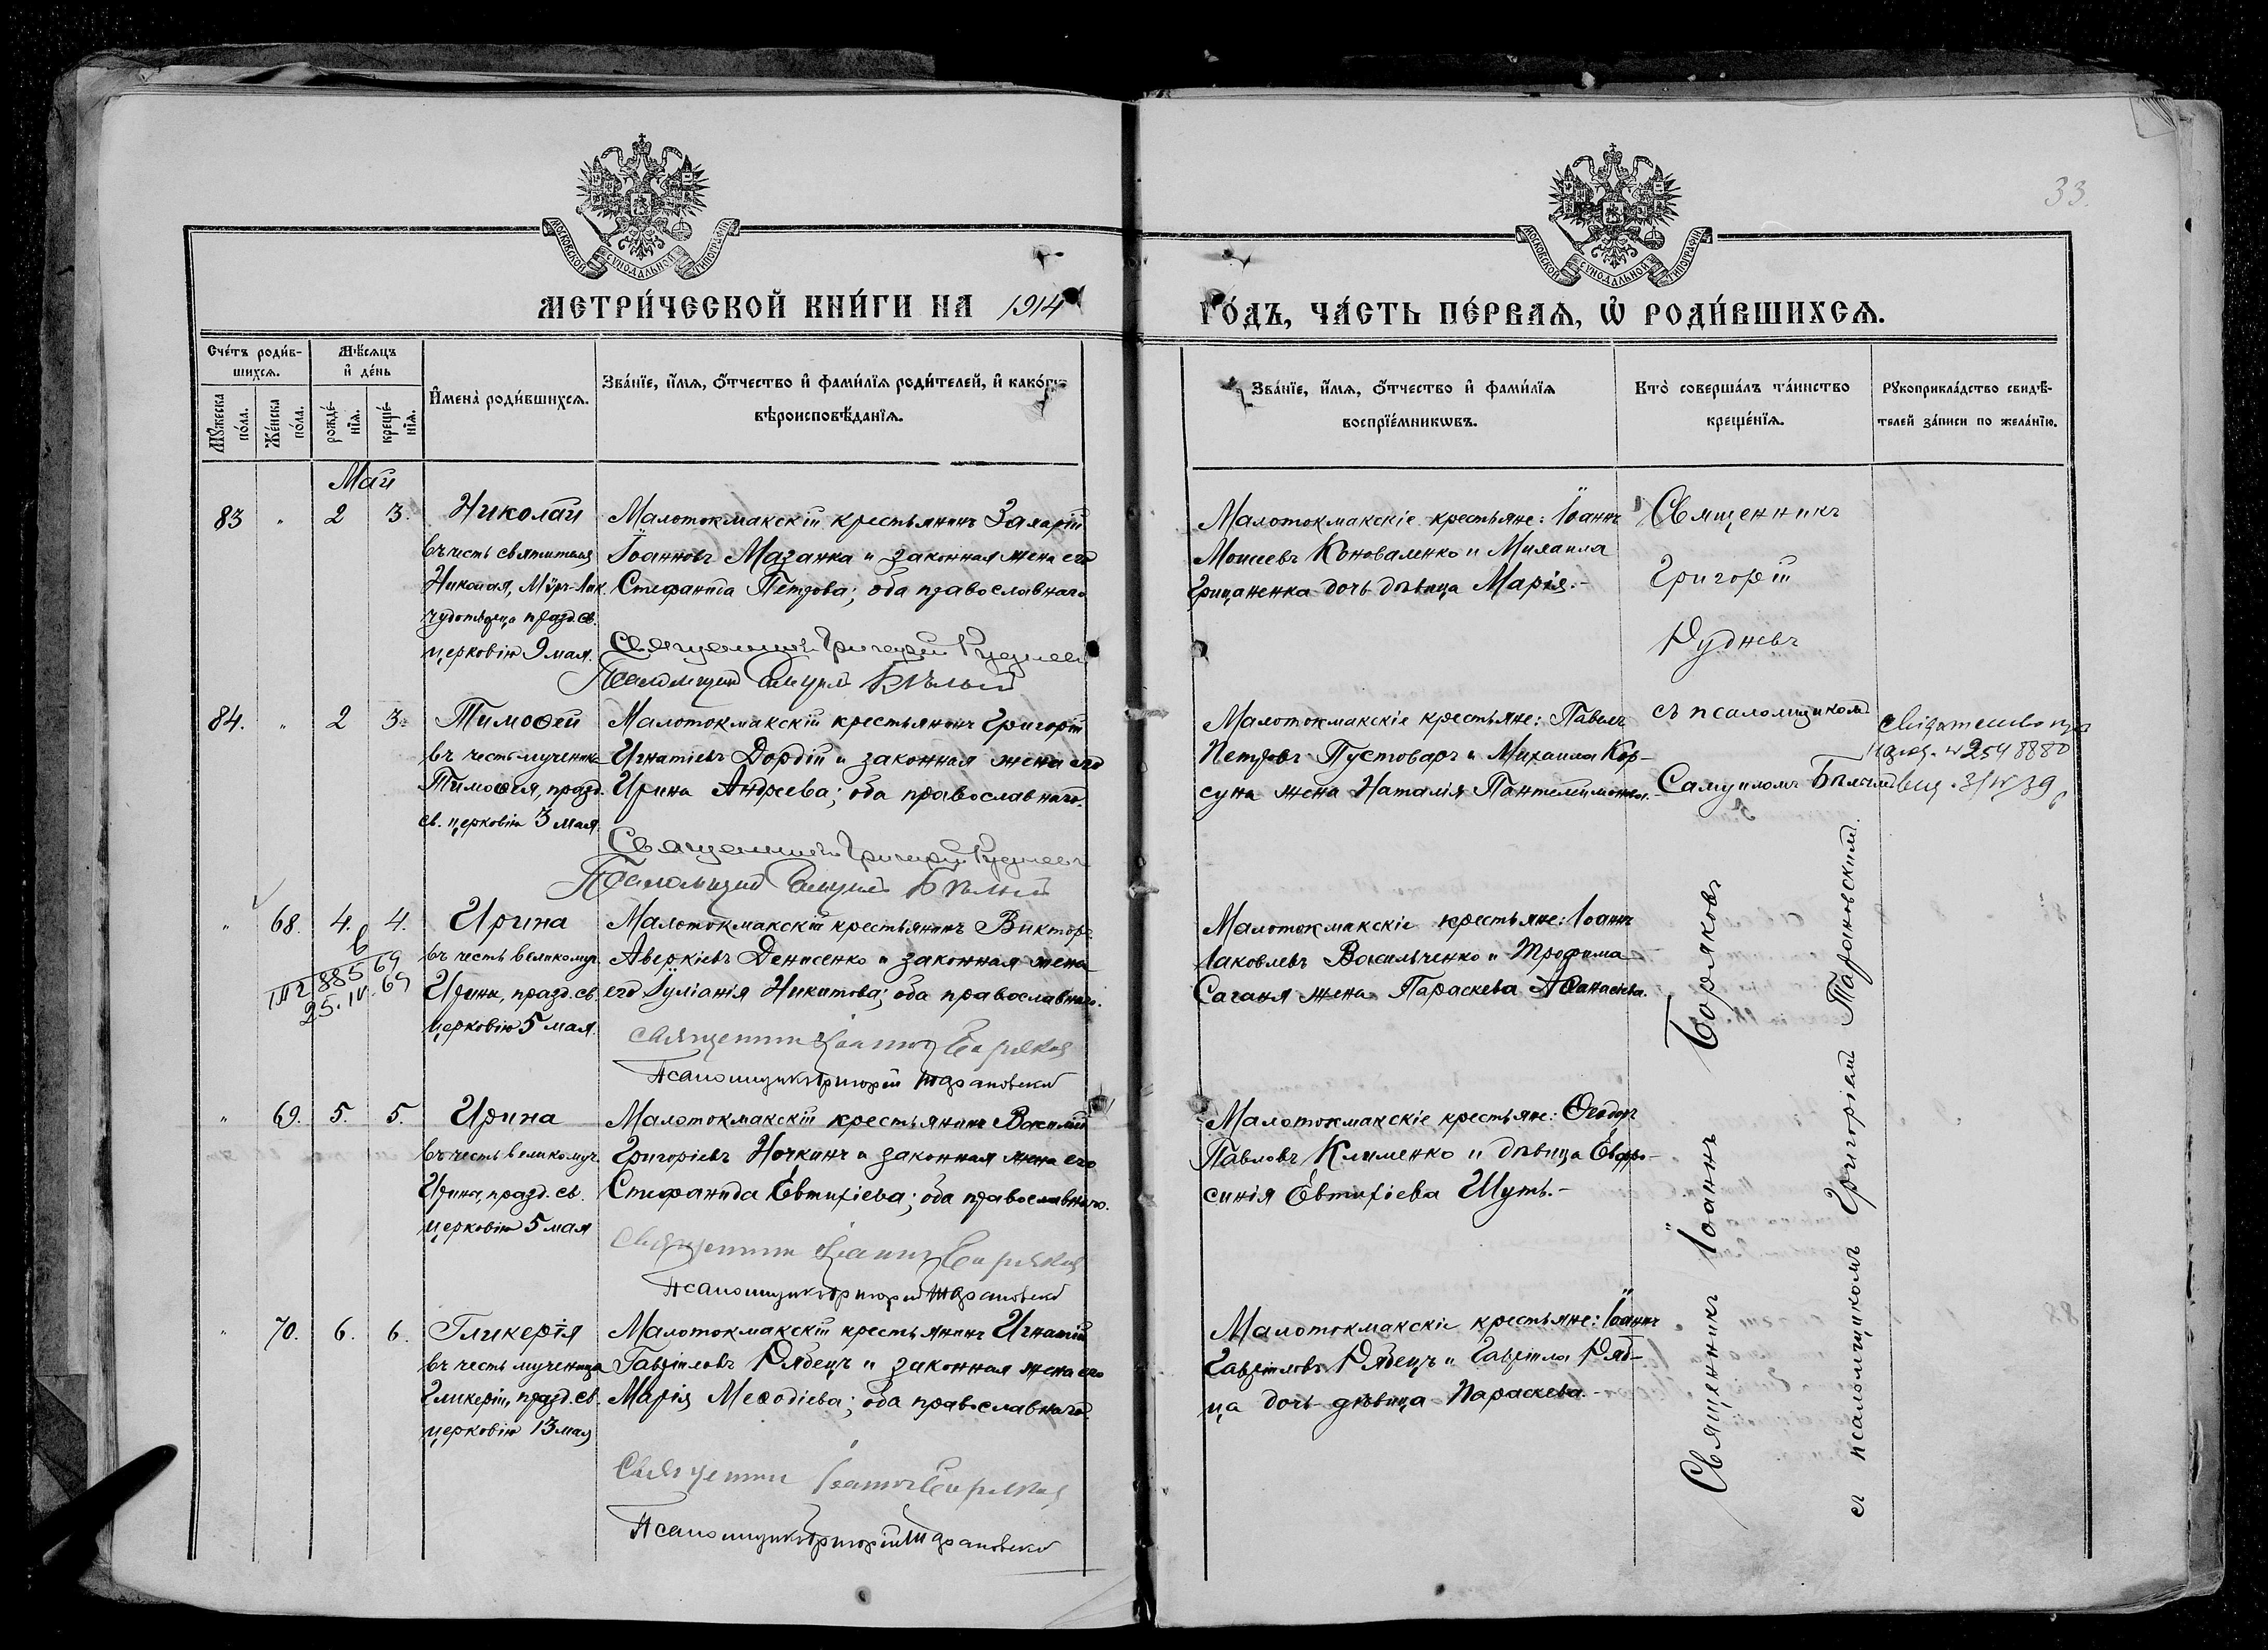 33.
МОСКОВСКОЙ СѴНОДАЛЬНОЙ ТИПОГРАФІИ
МОСКОВСКОЙ СѴНОДАЛЬНОЙ ТИПОГРАФІИ
МЕТРИ́ЧЕСКОЙ КНИ́ГИ НА 1914
ГО́ДЪ, ЧА́СТЬ ПЕ́РВАѦ, Ѡ҆ РОДИ́ВШИХСѦ.
Сче́тъ роди́в-
шихсѧ.
Мѣ́сѧцъ
и҆ де́нь
Мꙋ́жеска
по́ла.
Же́нска
по́ла.
рожде́-
нїѧ.
креще́-
нїѧ.
И҆мена̀ роди́вшихсѧ.
Зва́нїе, и҆́мѧ, ѻ҆́тчество и҆ фами́лїѧ роди́телей, и҆ како́гѡ
вѣроисповѣ́данїѧ.
Зва́нїе, и҆́мѧ, ѻ҆́тчество и҆ фами́лїѧ
воспрїе́мникѡвъ.
Кто̀ соверша́лъ та́инство
креще́нїѧ.
Рꙋкоприкла́дство свидѣ́-
телей за́писи по жела́нїю.
Май
83 " 2 3. Николай
въ честь святителя
Николая, Мѵръ-Лик.
чудотворца празд. св.
церковію 9 мая.
Малотокмакскій крестьянинъ Захарій
Іоанновъ Мазанка и законная жена его
Стефанида Петрова; оба православнаго
Священникъ Григорій Рудневъ
Псаломщикъ Самуилъ Бѣлый
Малотокмакскіе крестьяне: Іоаннъ
Моисеевъ Коноваленко и Михаила
Грицаненка дочь дѣвица Марія.-
Священникъ
Григорій
Рудневъ
съ псаломщикомъ
Самуиломъ Бѣлымъ
84. " 2 3. Тимоѳей
въ честь мученика
Тимоѳея, празд.
св. церковію 3 мая.
Малотокмакскій крестьянинъ Григорій
Игнатіевъ Дордій и законная жена его
Ирина Андреева; оба православнаго.
Священникъ Григорій Рудневъ
Псаломщикъ Самуилъ Бѣлый
Малотокмакскіе крестьяне: Павелъ
Петровъ Пустоваръ и Михаила Кор-
суна жена Наталія Пантелеимонова.-
№ 2548880
" 68. 4. 4. Ирина
въ честь великомуч.
Ирины, празд. св.
церковію 5 мая.
25.IV.69
Малотокмакскій крестьянинъ Викторъ
Аверкіевъ Денисенко и законная жена
его Іуліанія Никитова; оба православнаго.
Священникъ Іоаннъ Боряковъ
Псаломщикъ Григорій Тарановскій
Малотокмакскіе крестьяне: Іоаннъ
Іаковлевъ Васильченко и Трофима
Саганя жена Параскева Аѳанасіева.
Священникъ Іоаннъ Боряковъ
съ псаломщикомъ Григоріемъ Тарановскимъ.
" 69. 5. 5. Ирина
въ честь великомуч.
Ирины, празд. св.
церковію 5 мая
Малотокмакскій крестьянинъ Василій
Григоріевъ Ночкинъ и законная жена его
Стефанида Евтихіева; оба православнаго.
Священникъ Іоаннъ Боряковъ
Псаломщикъ Григорій Тарановскій
Малотокмакскіе крестьяне: Ѳеодоръ
Павловъ Клименко и дѣвица Евфро-
синія Евтихіева Шутъ.-
" 70. 6. 6. Гликерія
въ честь мученицы
Гликеріи, празд. св.
церковію 13 мая
Малотокмакскій крестьянинъ Игнатій
Гавріиловъ Рябецъ и законная жена его
Марія Меѳодіева; оба православнаго.
Священникъ Іоаннъ Боряковъ
Псаломщикъ Григорій Тарановскій
Малотокмакскіе крестьяне: Іоаннъ
Гавріиловъ Рябецъ и Гавріила Ряб-
ца дочь дѣвица Параскева.-